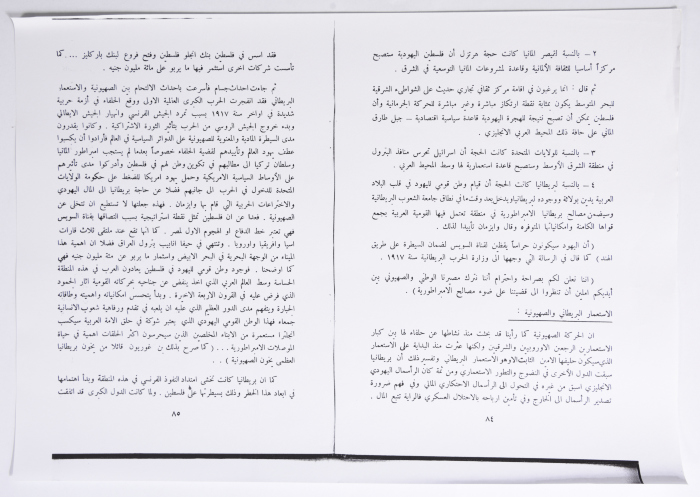 ٢ – بالنسبة لقيصر المانيا كانت حجة هرتزل أن فلسطين اليهودية ستصبح
مركزاً أساسيا للثقافة الألمانية وقاعدة لمشروعات المانيا التوسعية في الشرق .
ثم قال : انما يرغبون في اقامة مركز ثقافي تجاري حديث على الشواطىء الشرقية
للبحر المتوسط يكون بمثابة نقطة ارتكاز مباشرة وغير مباشرة للحركة الجرمانية وأن
فلسطين يمكن أن تصبح نتيجة للهجرة اليهودية قاعدة سياسية اقتصادية – جبل طارق
الماني على حافة ذلك المحيط العربي الانجليزي .
٣ – بالنسبة للولايات المتحدة كانت الحجة أن اسرائيل تحرس منافذ البترول
في منطقة الشرق الأوسط وستصبح قاعدة استعمارية لها وسط المحيط العربي .
٤ – بالنسبة لبريطانيا كانت الحجة أن قيام وطن قومي لليهود في قلب البلاد
العربية يدين بولائه ووجوده لبريطانيا يدخل بعد وقت ما في نطاق جامعة الشعوب البريطانية
وسيضمن مصالح بريطانيا الامبراطورية في منطقة تعتمل فيها القومية العربية بجمع
قواها الكامنة وامكانياتها المتوفرة وقال وايزمان تأييدا لذلك .
( أن اليهود سيكونون حراساً يقظين لقناة السويس لضمان السيطرة على طريق
الهند ) كما قال في الرسالة التي وجهها الى وزارة الحرب البريطانية سنة ١٩١٧ .
( اننا نعلن لكم بصراحة واحترام أننا نترك مصيرنا الوطني والصهيوني بين
أيديكم املين أن تنظروا الى قضيتنا على ضوء مصالح الامبراطورية ) .
الاستعمار البريطاني والصهيونية :
ان الحركة الصهيونية كما رأينا قد بحثت منذ نشاطها عن حلفاء لها بين كبار
الاستعمارين الرجعين الاوروبيين والشرقيين ولكنها عثرت منذ البداية على الاستعمار
الذي سيكون حليفها الامين الثابت الا وهو الاستعمار البريطاني وتفسير ذلك أن بريطانيا
سبقت الدول الأخرى في النضوج والتطور الاستعماري ومن ثمة كان الرأسمال اليهودي
الانجليزي اسبق من غيره في التحول الى الرأسمال الاحتكاري المالي وفي فهم ضرورة
تصدير الرأسمال الى الخارج وفي تأمين ارباحه بالاحتلال العسكري فالراية تتبع المال .
٨٤
فقد اسس في فلسطين بنك انجلو فلسطين وفتح فروع لبنك باركليز .... كما
تأسست شركات اخرى أستثمر فيها ما يربو على مائة مليون جنيه .
ثم جاءت احداث جسام فأسرعت باحداث الالتحام بين الصهيونية والاستعمار
البريطاني فقد انفجرت الحرب الكبرى العالمية الاولى ووقع الحلفاء في أزمة حربية
شديدة في اواخر سنة ١٩١٧ بسبب تمرد الجيش الفرنسي وانهيار الجيش الايطالي
وبدء خروج الجيش الروسي من الحرب بتأثير الثورة الاشتراكية . وكانوا يقدرون
مدى السيطرة المادية والمعنوية للصهيونية على الدوائر السياسية في العالم فأرادوا أن يكسبوا
عطف يهود العالم وتأييدهم لقضية الحلفاء خصوصاً بعدما لم يستجب امبراطور المانيا
وسلطان تركيا الى مطالبهم في تكوين وطن لهم في فلسطين وأدركوا مدى تأثيرهم
على الأوساط السياسية الامريكية وحمل يهود امريكا للضغط على حكومة الولايات
المتحدة للدخول في الحرب الى جانبهم فضلا عن حاجة بريطانيا الى المال اليهودي
والاختراعات الحربية التي قام بها وايزمان . فهذه جعلتها لا تستطيع ان تتخلى عن
الصهيونية . فعدا عن ان فلسطين تمثل نقطة استراتيجية بسبب التصاقها بقناة السويس
فهي تعتبر خط الدفاع او الهجوم الاول لمصر . كما أنها تقع عند ملتقى ثلاث قارات
اسيا وافريقيا واوروبا . وتنتهي في حيفا انابيب بترول العراق فضلا ان اهمية هذا
الميناء من الوجهة البحرية في البحر الابيض واستثمار ما يربو عن مئة مليون جنيه فهي
كما اوضحنا . فوجود وطن قومي لليهود في فلسطين يعادون العرب في هذه المنطقة
الحساسة وسط العالم العربي الذي اخذ ينفض عن جناحيه بحركاته القومية اثار الجمود
الذي فرض عليه في القرون الاربعة الاخيرة . وبدأ يتحسس امكانياته واهميته وطاقاته
الجبارة ويتفهم مدى الدور العظيم الذي عليه ان يلعبه في تقدم ورفاهية شعوب الانسانية
جمعاء فهذا الوطن القومي اليهودي الذي يعتبر شوكة في حلق الامة العربية سيكسب
أنجلترا مستعمرة من الابناء المخلصين الذين سيحرسون أكثر الحلقات اهمية في حياة
الموصلات الامبراطورية .... ( كما صرح بذلك بن غوريون قائلا من يخون بريطانيا
العظمى يخون الصهيونية ) .
كما ان بريطانيا كانت تخشى امتداد النفوذ الفرنسي في هذه المنطقة وبدأ اهتمامها
في ابعاد هذا الخطر وذلك بسيطرتها على فلسطين . ولما كانت الدول الكبرى قد اتفقت
٨٥